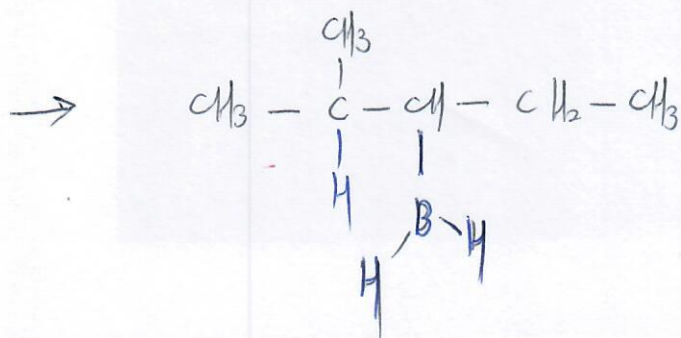 CH3
→ CH3 — C — CH — CH2 — CH3
H B H
H